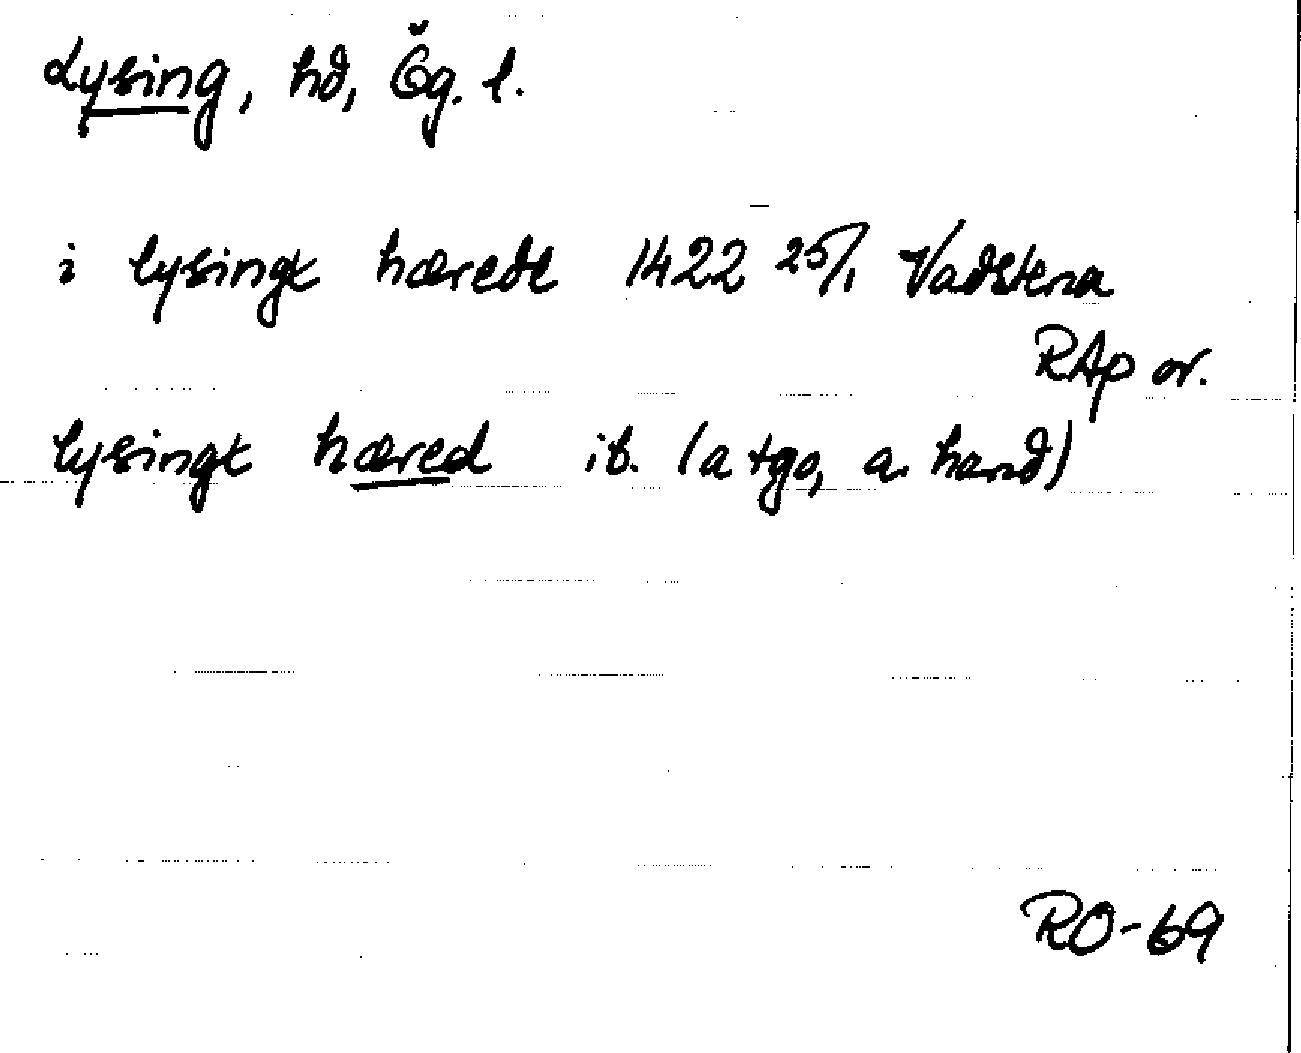 Lysing, hd, Ög. l.
i lysingx hærede 1422 25/1 Vadstena
RAp or.
lysingx hæred ib. (a tgo, a. hand)
RO-69